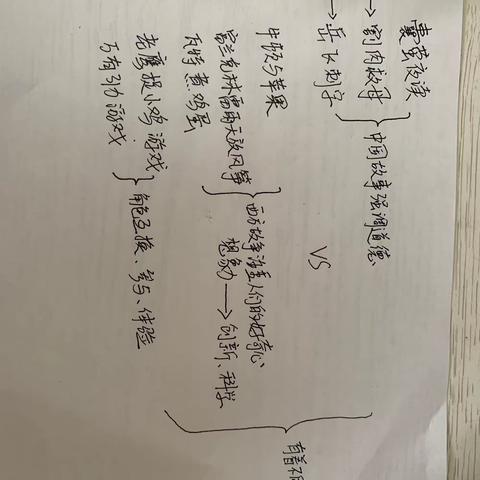 囊萤夜读
→ 割肉救母
→ 岳飞刺字
中国故事强调道德
VS
牛顿与苹果
富兰克林雷雨天放风筝
瓦特煮鸡蛋
西方故事注重人们的好奇心
想象力 → 创新、科学
老鹰捉小鸡游戏
万有引力游戏
角色互换、参与、体验
有着